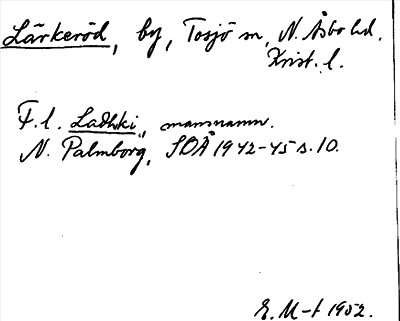 Lärkeröd, by, Tosjö sn, N. Åsbo hd.
Krist. l.
F. l. Ladhki, mansnamn.
N. Palmborg, SOÅ 1942-45 s. 10.
E. M-t 1952.